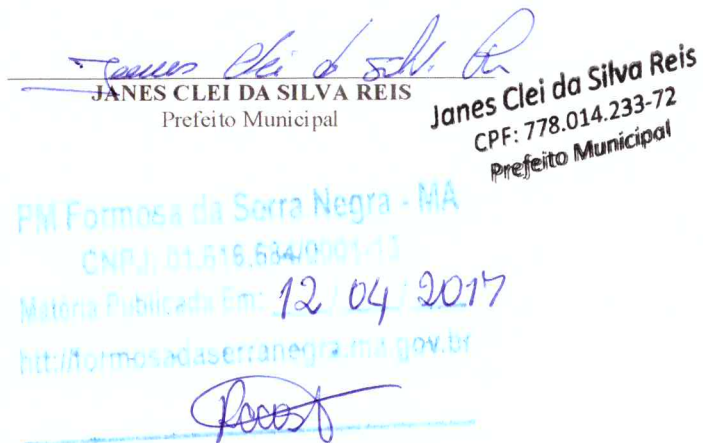 Janes Clei da Silv. R
JANES CLEI DA SILVA REIS
Prefeito Municipal
Janes Clei da Silva Reis
CPF: 778.014.233-72
Prefeito Municipal
PM Formosa da Serra Negra - MA
CNPJ: 01.616.684/0001-13
Materia Publicada Em: 12 / 04 / 2017
htt://formosadaserranegra.ma.gov.br